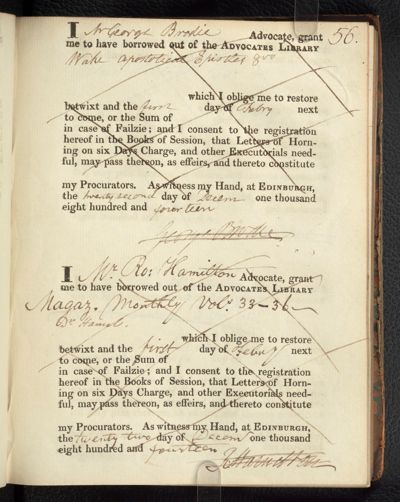 56.
I Mr George Brodie Advocate, grant
me to have borrowed out of the ADVOCATES LIBRARY
Wake apostolical Epistles 8vo
which I oblige me to restore
betwixt and the first day of Febry next
to come, or the Sum of
in case of Failzie; and I consent to the registration
hereof in the Books of Session, that Letters of Horn-
ing on six Days Charge, and other Executorials need-
ful, may pass thereon, as effeirs, and thereto constitute
my Procurators. As witness my Hand, at EDINBURGH,
the twenty second day of Decem one thousand
eight hundred and fourteen
George Brodie
I Mr. Ro: Hamilton Advocate, grant
me to have borrowed out of the ADVOCATES LIBRARY
Magaz. Monthly Vol. 33-36-
which I oblige me to restore
betwixt and the first day of Febry next
to come, or the Sum of
in case of Failzie; and I consent to the registration
hereof in the Books of Session, that Letters of Horn-
ing on six Days Charge, and other Executorials need-
ful, may pass thereon, as effeirs, and thereto constitute
my Procurators. As witness my Hand, at EDINBURGH,
the twenty two day of Decem one thousand
eight hundred and fourteen
R Hamilton